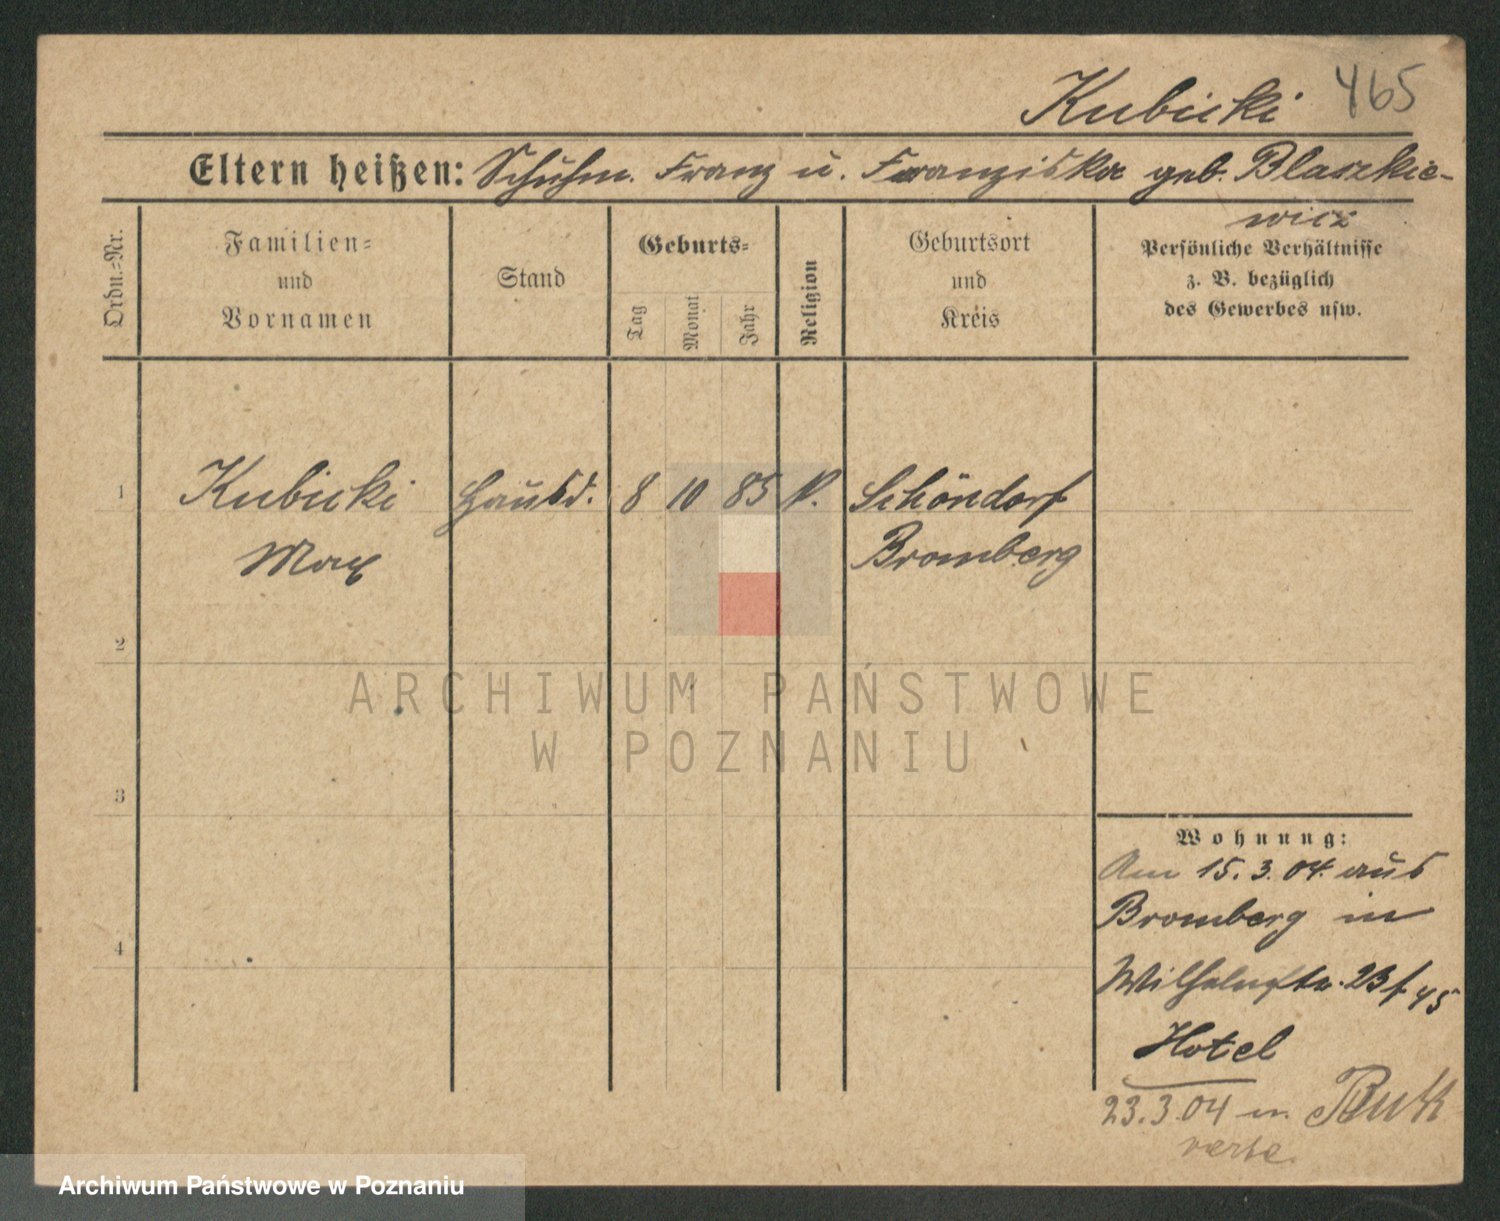 Kubicki 465
Eltern heißen: Schuhm. Franz u. Franziska geb. Blaszkie-
wicz
Ordn.=Nr.
Familien=
und
Vornamen
Stand
Geburts=
Tag
Monat
Jahr
Religion
Geburtsort
und
Kreis
Persönliche Verhältnisse
z. B. bezüglich
des Gewerbes usw.
1 Kubicki Hausd. 8 10 85 k. Schöndorf
Max Bromberg
2
3
4
ARCHIWUM PAŃSTWOWE
W POZNANIU
Wohnung:
Am 15.3.04. aus
Bromberg in
Wilhelmstr. 23 f. 45
Hotel
23.3.04 n. Buk
verte.
Archiwum Państwowe w Poznaniu